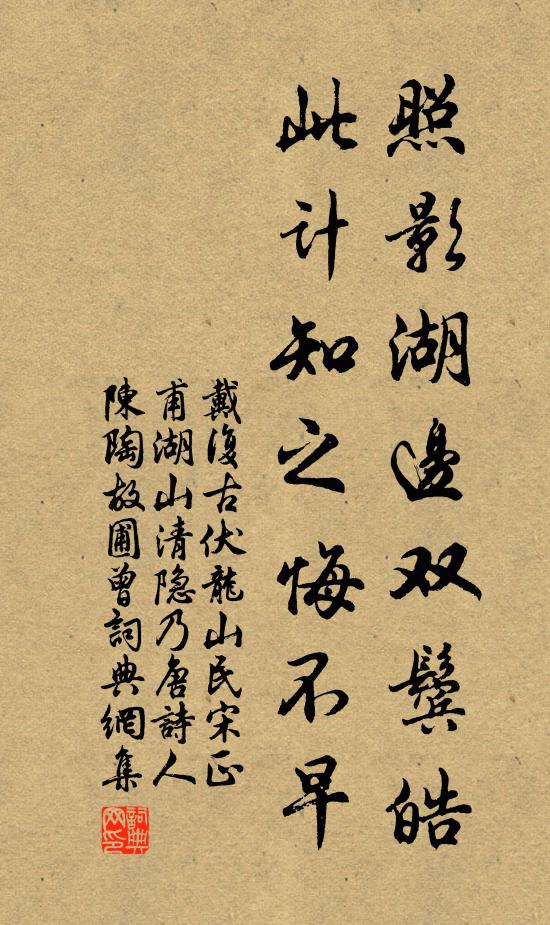 照影湖邊双鬓皓
此计知之悔不早
戴復古伏龍山民宋正
甫湖山清隐乃唐詩人
陳陶故圃曾詞典網集
詞典
网印